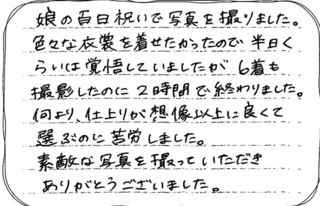 娘の百日祝いで写真を撮りました。
色々な衣装を着せたかったので半日く
らいは覚悟していましたが 6着も
撮影したのに2時間で終わりました。
何より、仕上りが想像以上に良くて
選ぶのに苦労しました。
素敵な写真を撮っていただき
ありがとうございました。